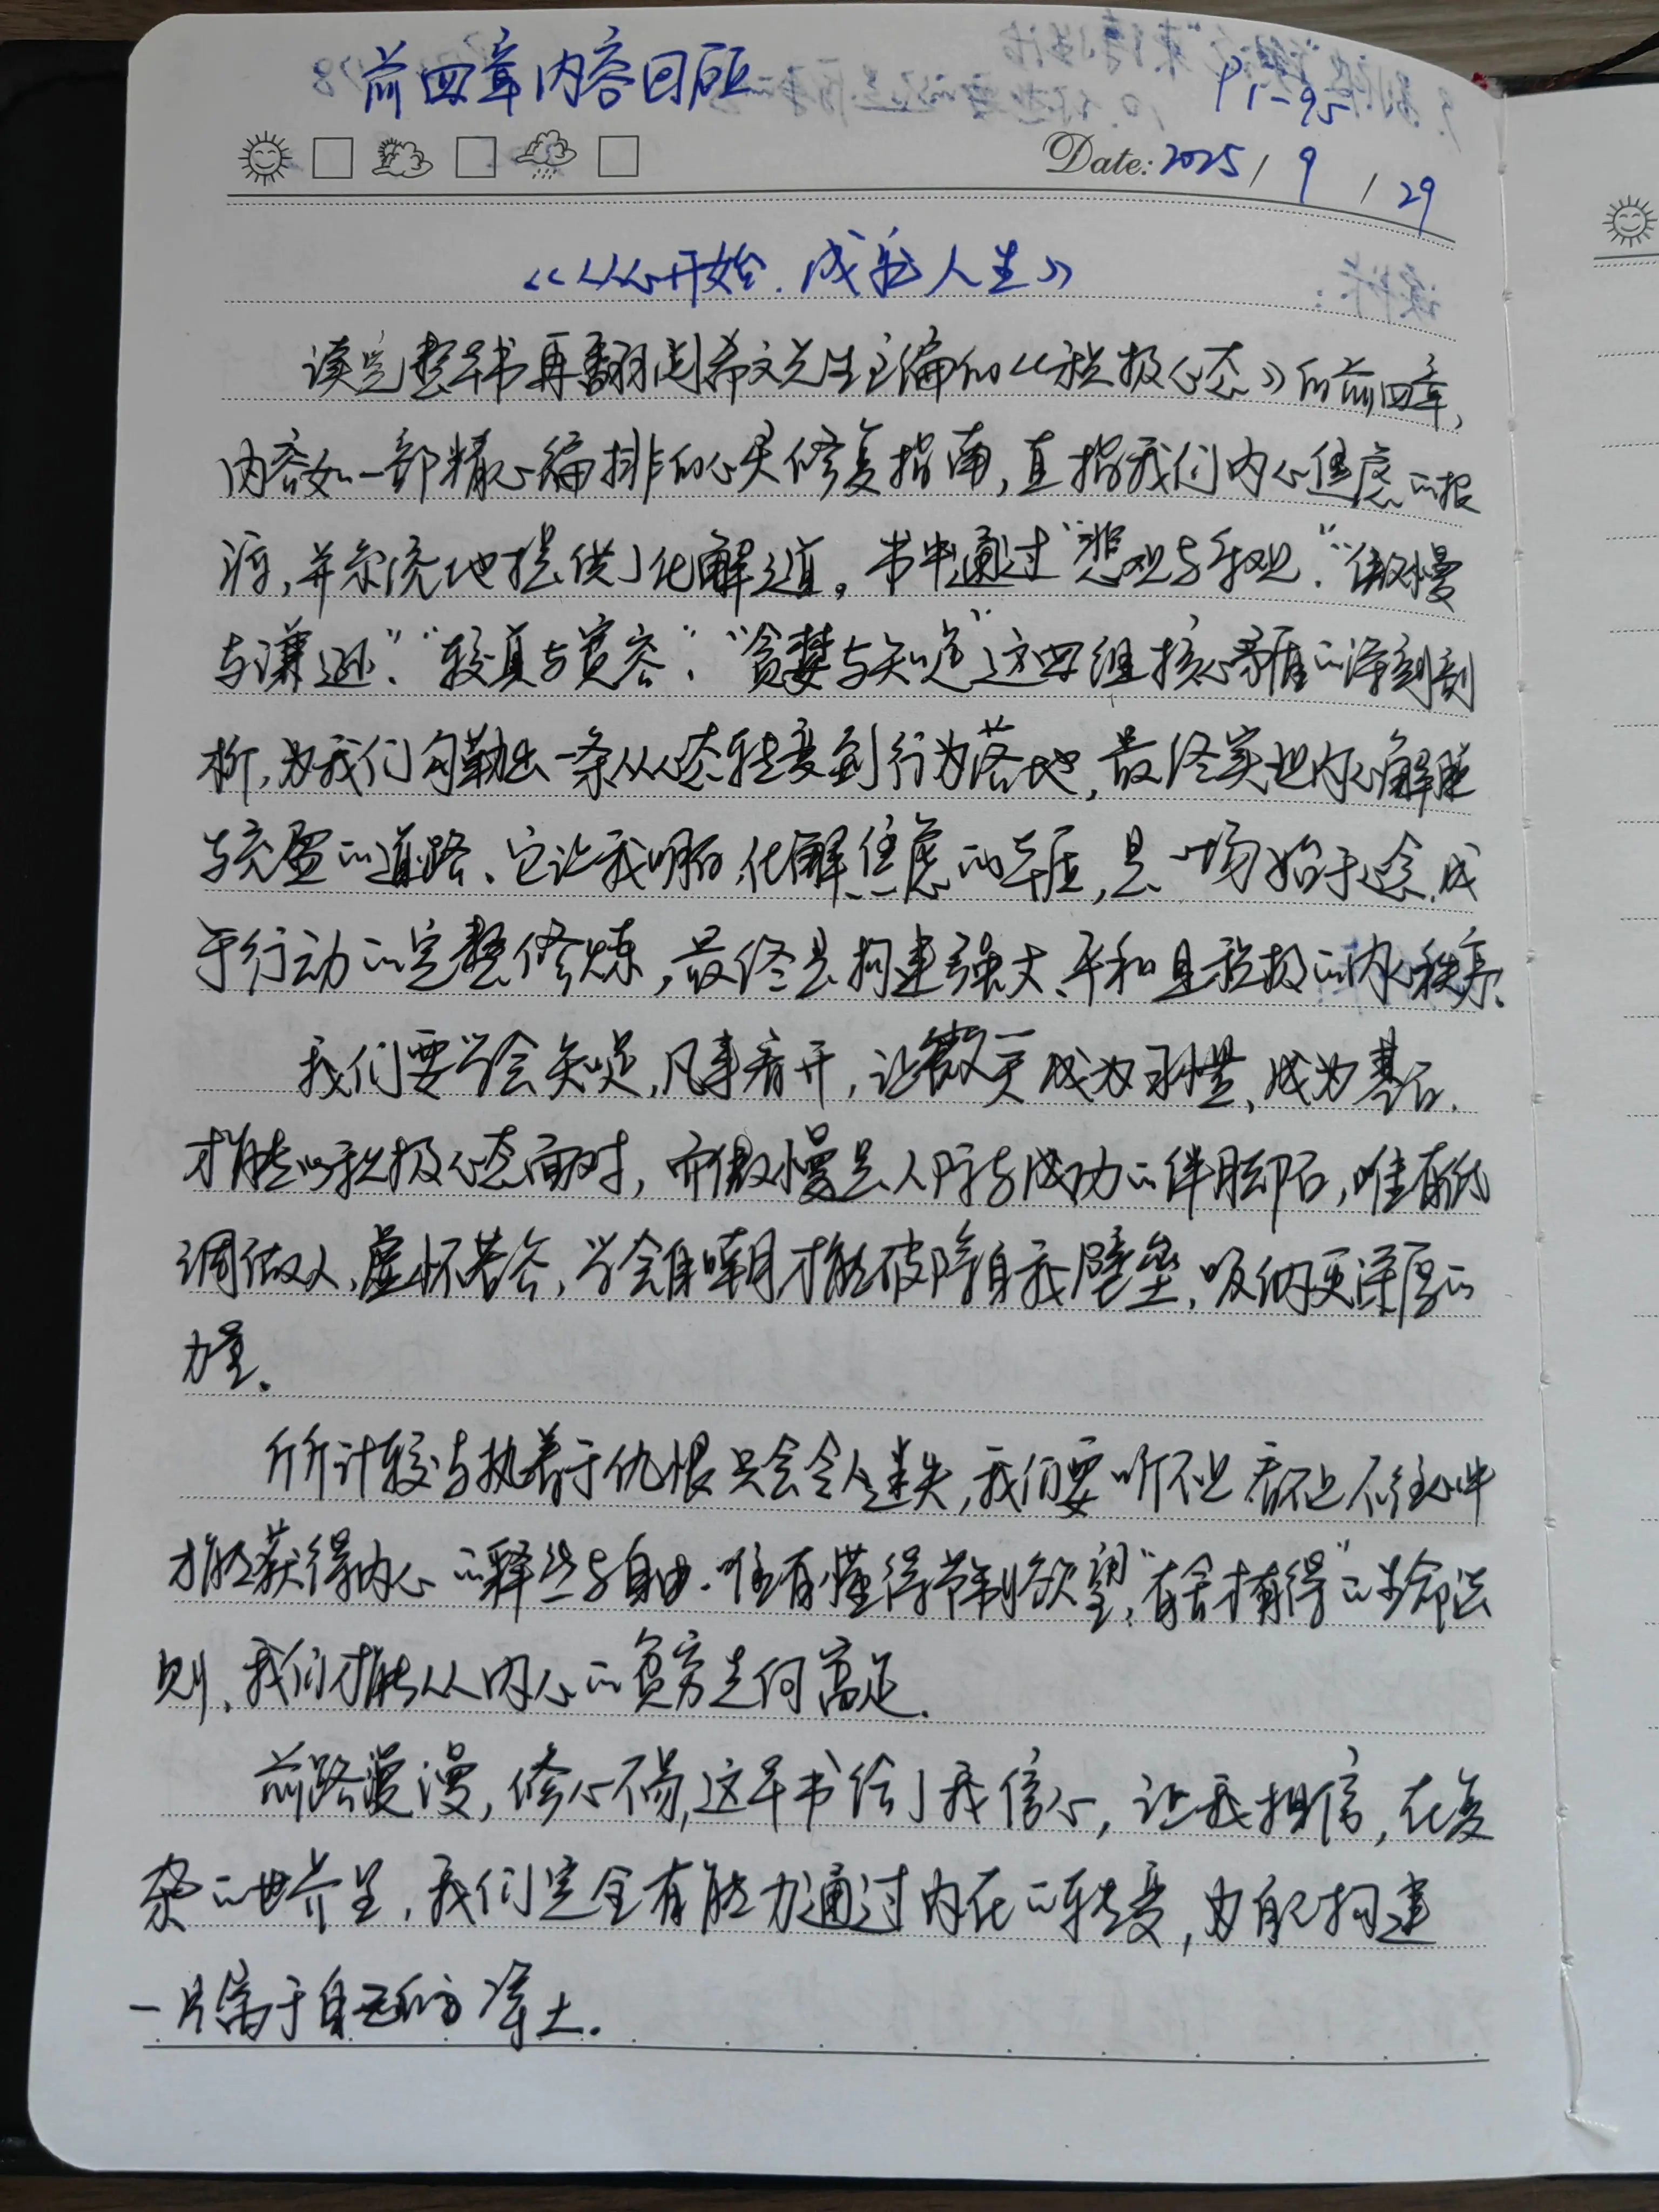 前四章内容回顾
P1-95
Date: 2025 / 9 / 29
《从心开始.成就人生》
读完整本书再翻阅希文先生主编的《积极心态》的前四章,
内容如一部精心编排的心灵修复指南,直指我们内心焦虑的根
源,并系统地提供了化解之道。书中通过“悲观与乐观”.“傲慢
与谦逊”、“较真与宽容”、“贪婪与知足”这四组核心命题的深刻剖
析,为我们勾勒出一条从心态转变到行为落地,最终实现内心解脱
与充盈的道路、它让我明白,化解焦虑的本质,是一场始于念,成
于行动的完整修炼,最终是构建强大、平和且积极的内心秩序、
我们要学会知足,凡事看开,让微笑成为习惯、成为基石.
才能以积极心态面对,而傲慢是人际与成功的绊脚石,唯有低
调做人,虚怀若谷,学会自嘲才能破除自我壁垒,吸纳更深厚的
力量.
斤斤计较与执着于仇恨只会令人迷失,我们要听不见看不见不往心里
才能获得内心的释然与自由.唯有懂得节制欲望,“有舍才有得”的生命法
则、我们才能从内心的贫穷走向富足.
前路漫漫,修心不易,这本书给了我信心,让我相信,在复
杂的世界里,我们完全有能力通过内在的转变,为自己构建
一片属于自己的净土.